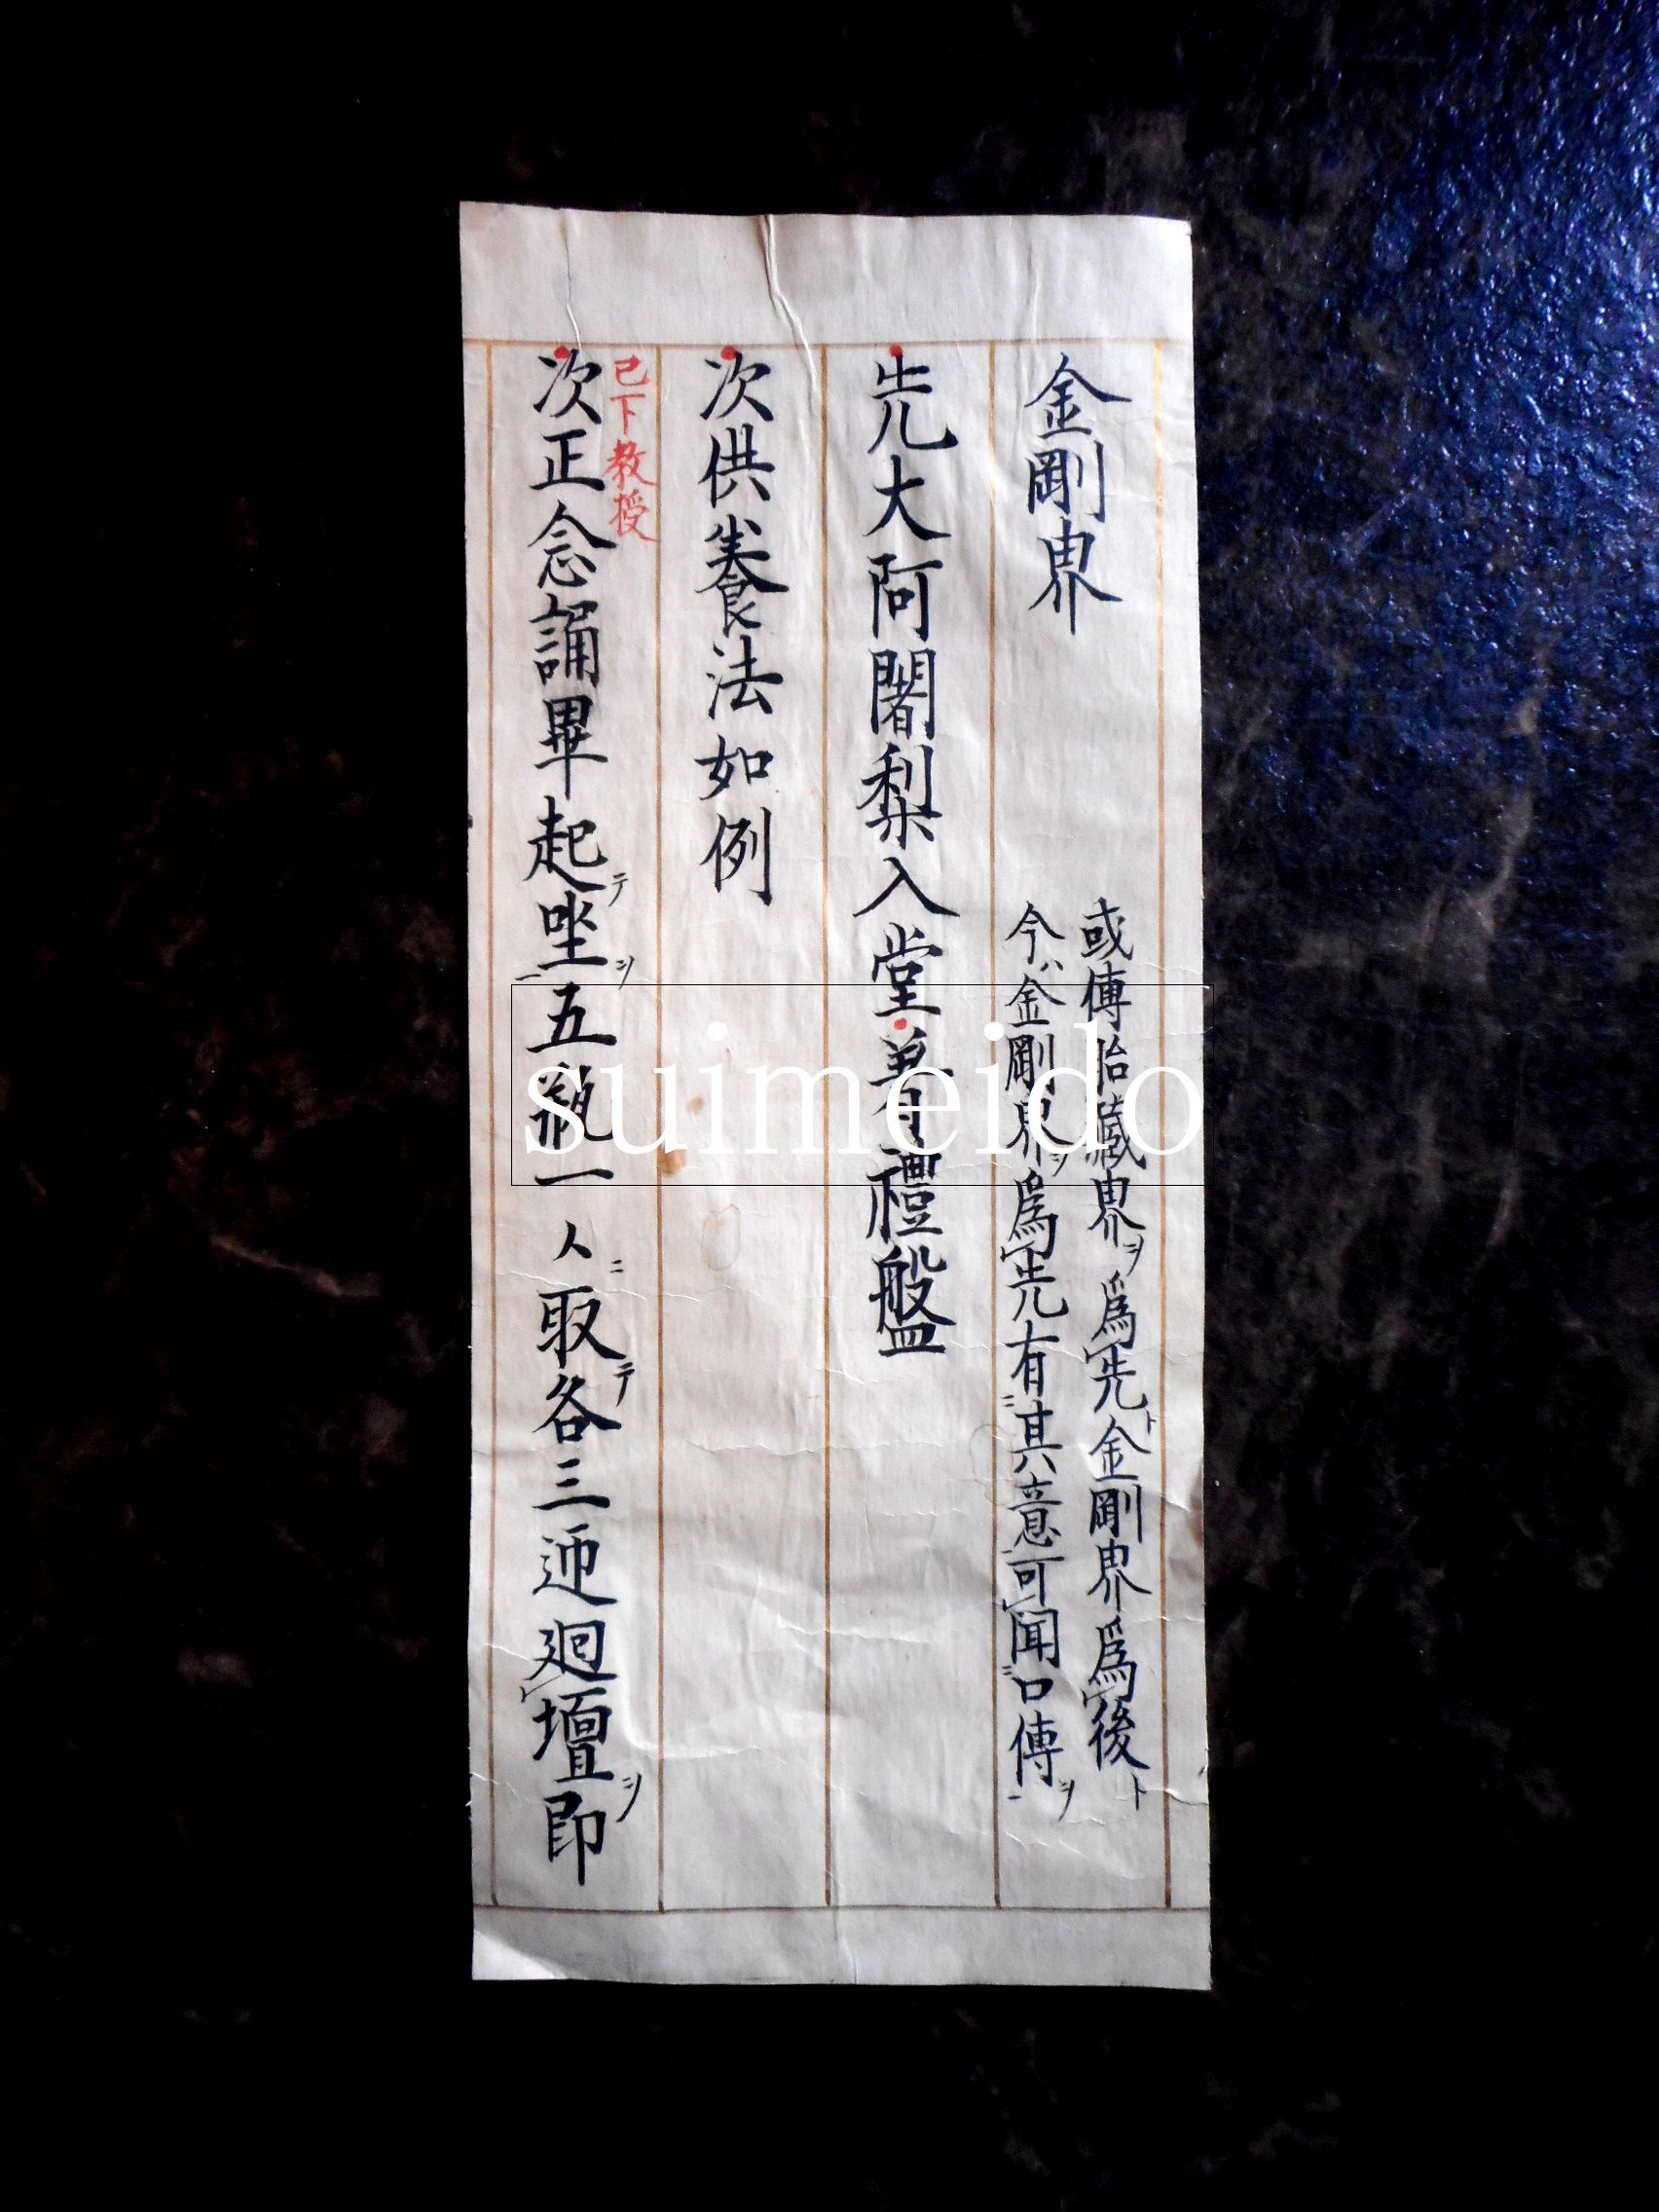 金剛界
或傳胎藏界ヲ為先ト金剛界為後ト
今ハ金剛界ヲ為先有其意可聞口傳ヲ
先大阿闍梨入堂着禮盤
次供養法如例
已下教授
次正念誦畢起テ坐ヲ五瓶一人ニ取テ各三迊廻壇ヲ即
suimeido